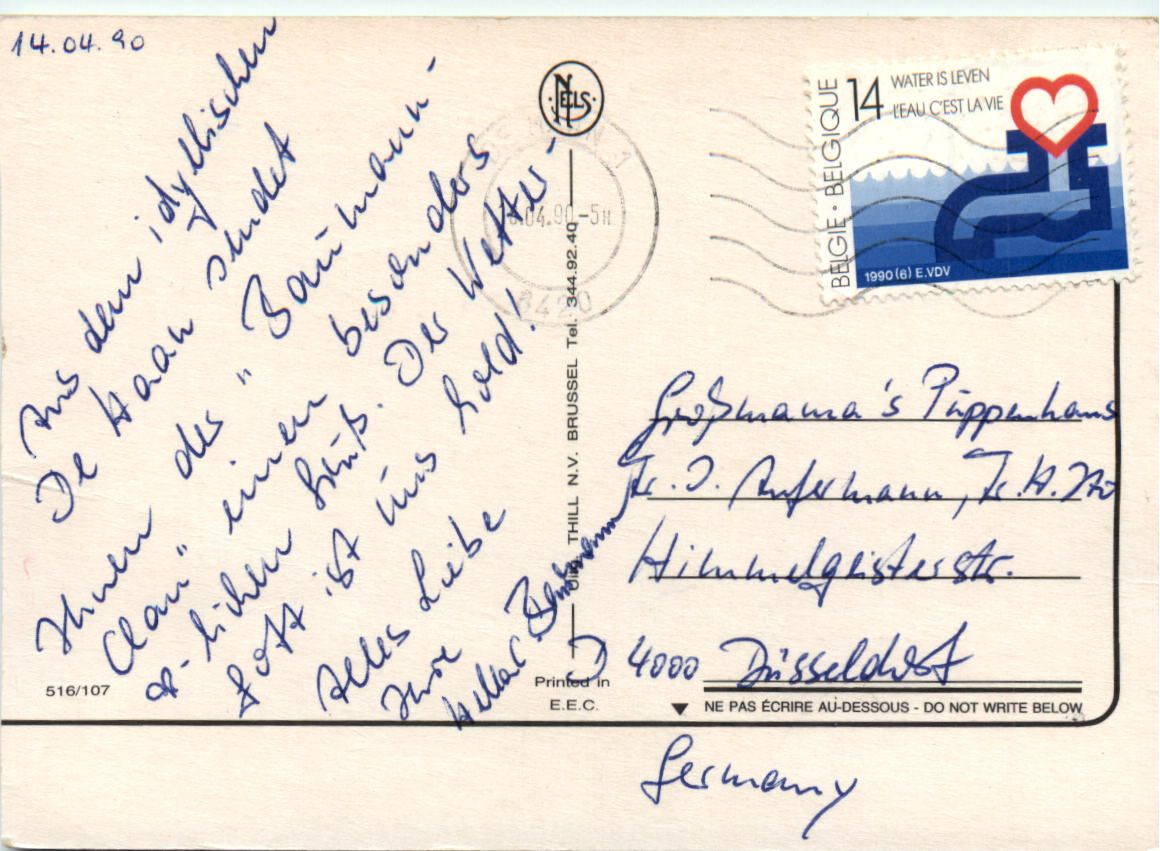 14.04.90
Aus dem idyllischen
De Haan sendet
Ihnen des "Baumann-
Clan" einen besonders
lichen Gruß. Der Wetter-
gott ist uns hold!
Alles Liebe
Ihre
Baumann
NELS
04.90-5H
8420
Uitg. THILL N.V. BRUSSEL Tel. 344.92.40
Printed in
E.E.C.
516/107
BELGIË · BELGIQUE
14
WATER IS LEVEN
L'EAU C'EST LA VIE
1990 (6) E.VDV
Großmama's Puppenhaus
Fr. I. Aufermann, Fr. H.
Himmelgeisterstr.
D 4000 Düsseldorf
NE PAS ÉCRIRE AU-DESSOUS - DO NOT WRITE BELOW
Germany